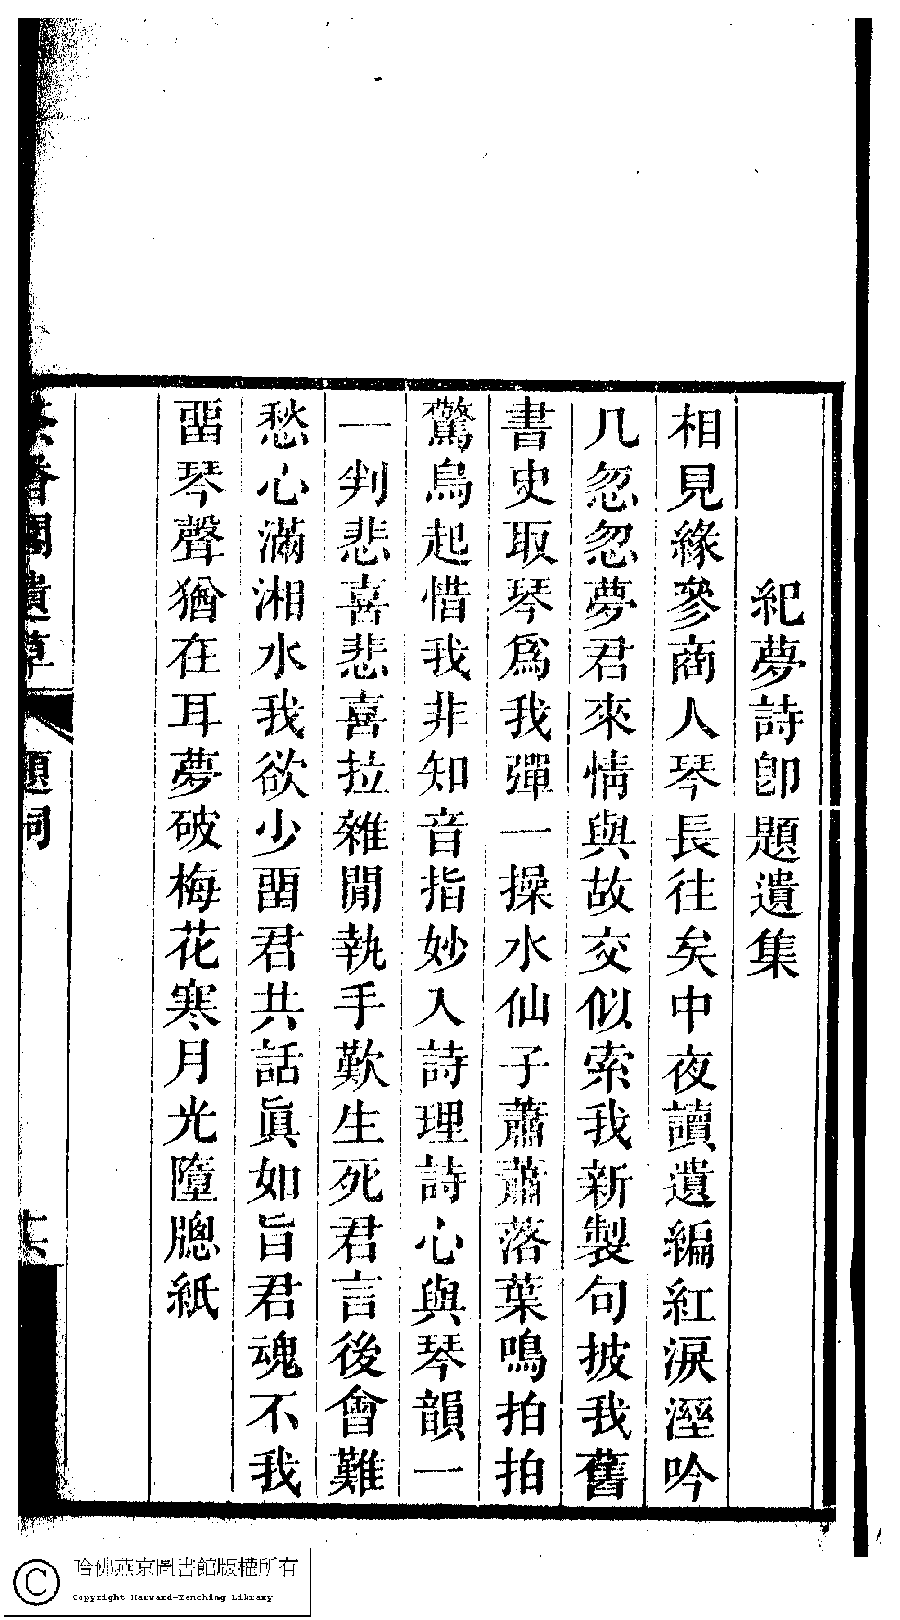 紀夢詩卽題遺集
相見緣參商人琴長往矣中夜讀遺編紅淚溼吟
几忽忽夢君來情與故交似索我新製句披我舊
書史取琴爲我彈一操水仙子蕭蕭落葉鳴拍拍
驚烏起惜我非知音指妙入詩理詩心與琴韻一
一判悲喜悲喜拉雜閒執手歎生死君言後會難
愁心滿湘水我欲少畱君共話眞如旨君魂不我
畱琴聲猶在耳夢破梅花寒月光墮牕紙
香閣遺草
題詞
哈佛燕京圖書館版權所有
Copyright Harvard-Yenching Library